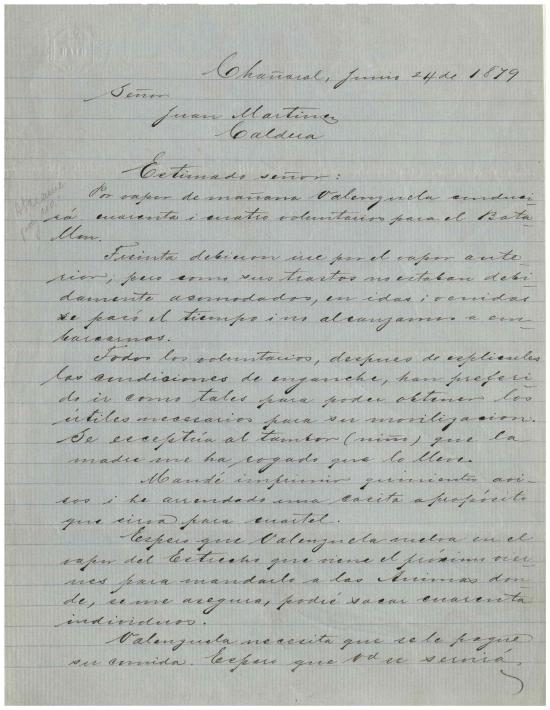 Chañaral, Junio 24 de 1879
Señor
Juan Martinez
Caldera
Estimado señor:
Por vapor de mañana Valenzuela conduci-
rá cuarenta i cuatro voluntarios para el Bata-
llon.
Treinta debieron irse por el vapor ante-
rior, pero como sus trastos no estaban debi-
damente acomodados, en idas i venidas
se pasó el tiempo i no alcanzamos a em-
barcarnos.
Todos los voluntarios, despues de esplicarles
las condiciones de enganche, han preferi-
do ir como tales para poder obtener los
útiles necesarios para su movilizacion.
Se esceptúa al tambor (niño) que la
madre me ha rogado que lo lleve.
Mandé imprimir quinientos avi-
sos i he arrendado una casita a propósito
que sirva para cuartel.
Espero que Valenzuela vuelva en el
vapor del Estrecho que viene el próximo vier-
nes para mandarlo a las Animas don-
de, se me asegura, podré sacar cuarenta
individuos.
Valenzuela necesita que se le pague
su comida. Espero que Vd se servirá